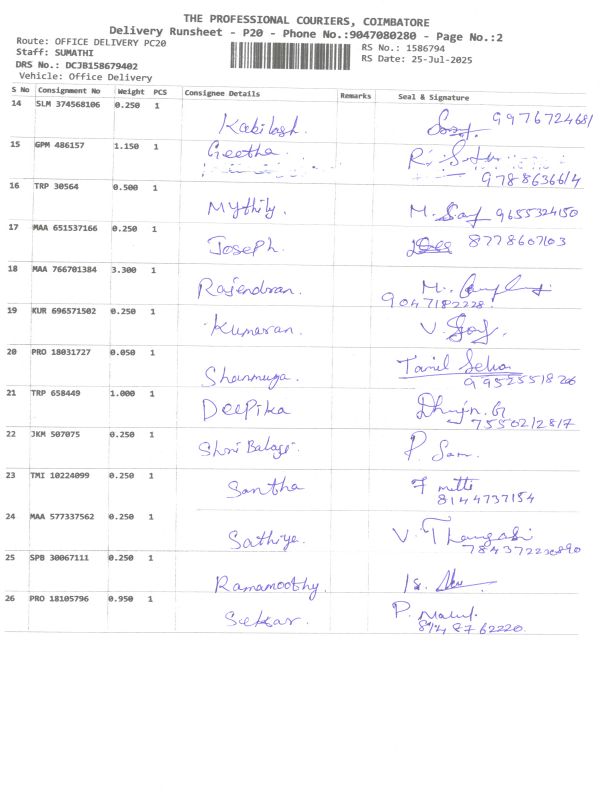 THE PROFESSIONAL COURIERS, COIMBATORE
Delivery Runsheet - P20 - Phone No.:9047080280 - Page No.:2
Route: OFFICE DELIVERY PC20
RS No.: 1586794
Staff: SUMATHI
RS Date: 25-Jul-2025
DRS No.: DCJB158679402
Vehicle: Office Delivery
S No Consignment No Weight PCS Consignee Details Remarks Seal & Signature
14 SLM 374568106 0.250 1
Kabilash. 9976724681
15 GPM 486157 1.150 1
Geetha.
9788636614
16 TRP 30564 0.500 1
Mythily. M. 9655324150
17 MAA 651537166 0.250 1
Joseph. 8778607103
18 MAA 766701384 3.300 1
Rajendran. M.
9047182228
19 KUR 696571502 0.250 1
Kumaran. V.
20 PRO 18031727 0.050 1
Shanmuga. Tamil
21 TRP 658449 1.000 1
Deepika
7550212817
22 JKM 507075 0.250 1
Shri Balaji. P. Sam.
23 TMI 10224099 0.250 1
Santha
8144737154
24 MAA 577337562 0.250 1
Sathiya. V. Thangasi
25 SPB 30067111 0.250 1
Ramamoothy.
26 PRO 18105796 0.950 1
Sekar. P.